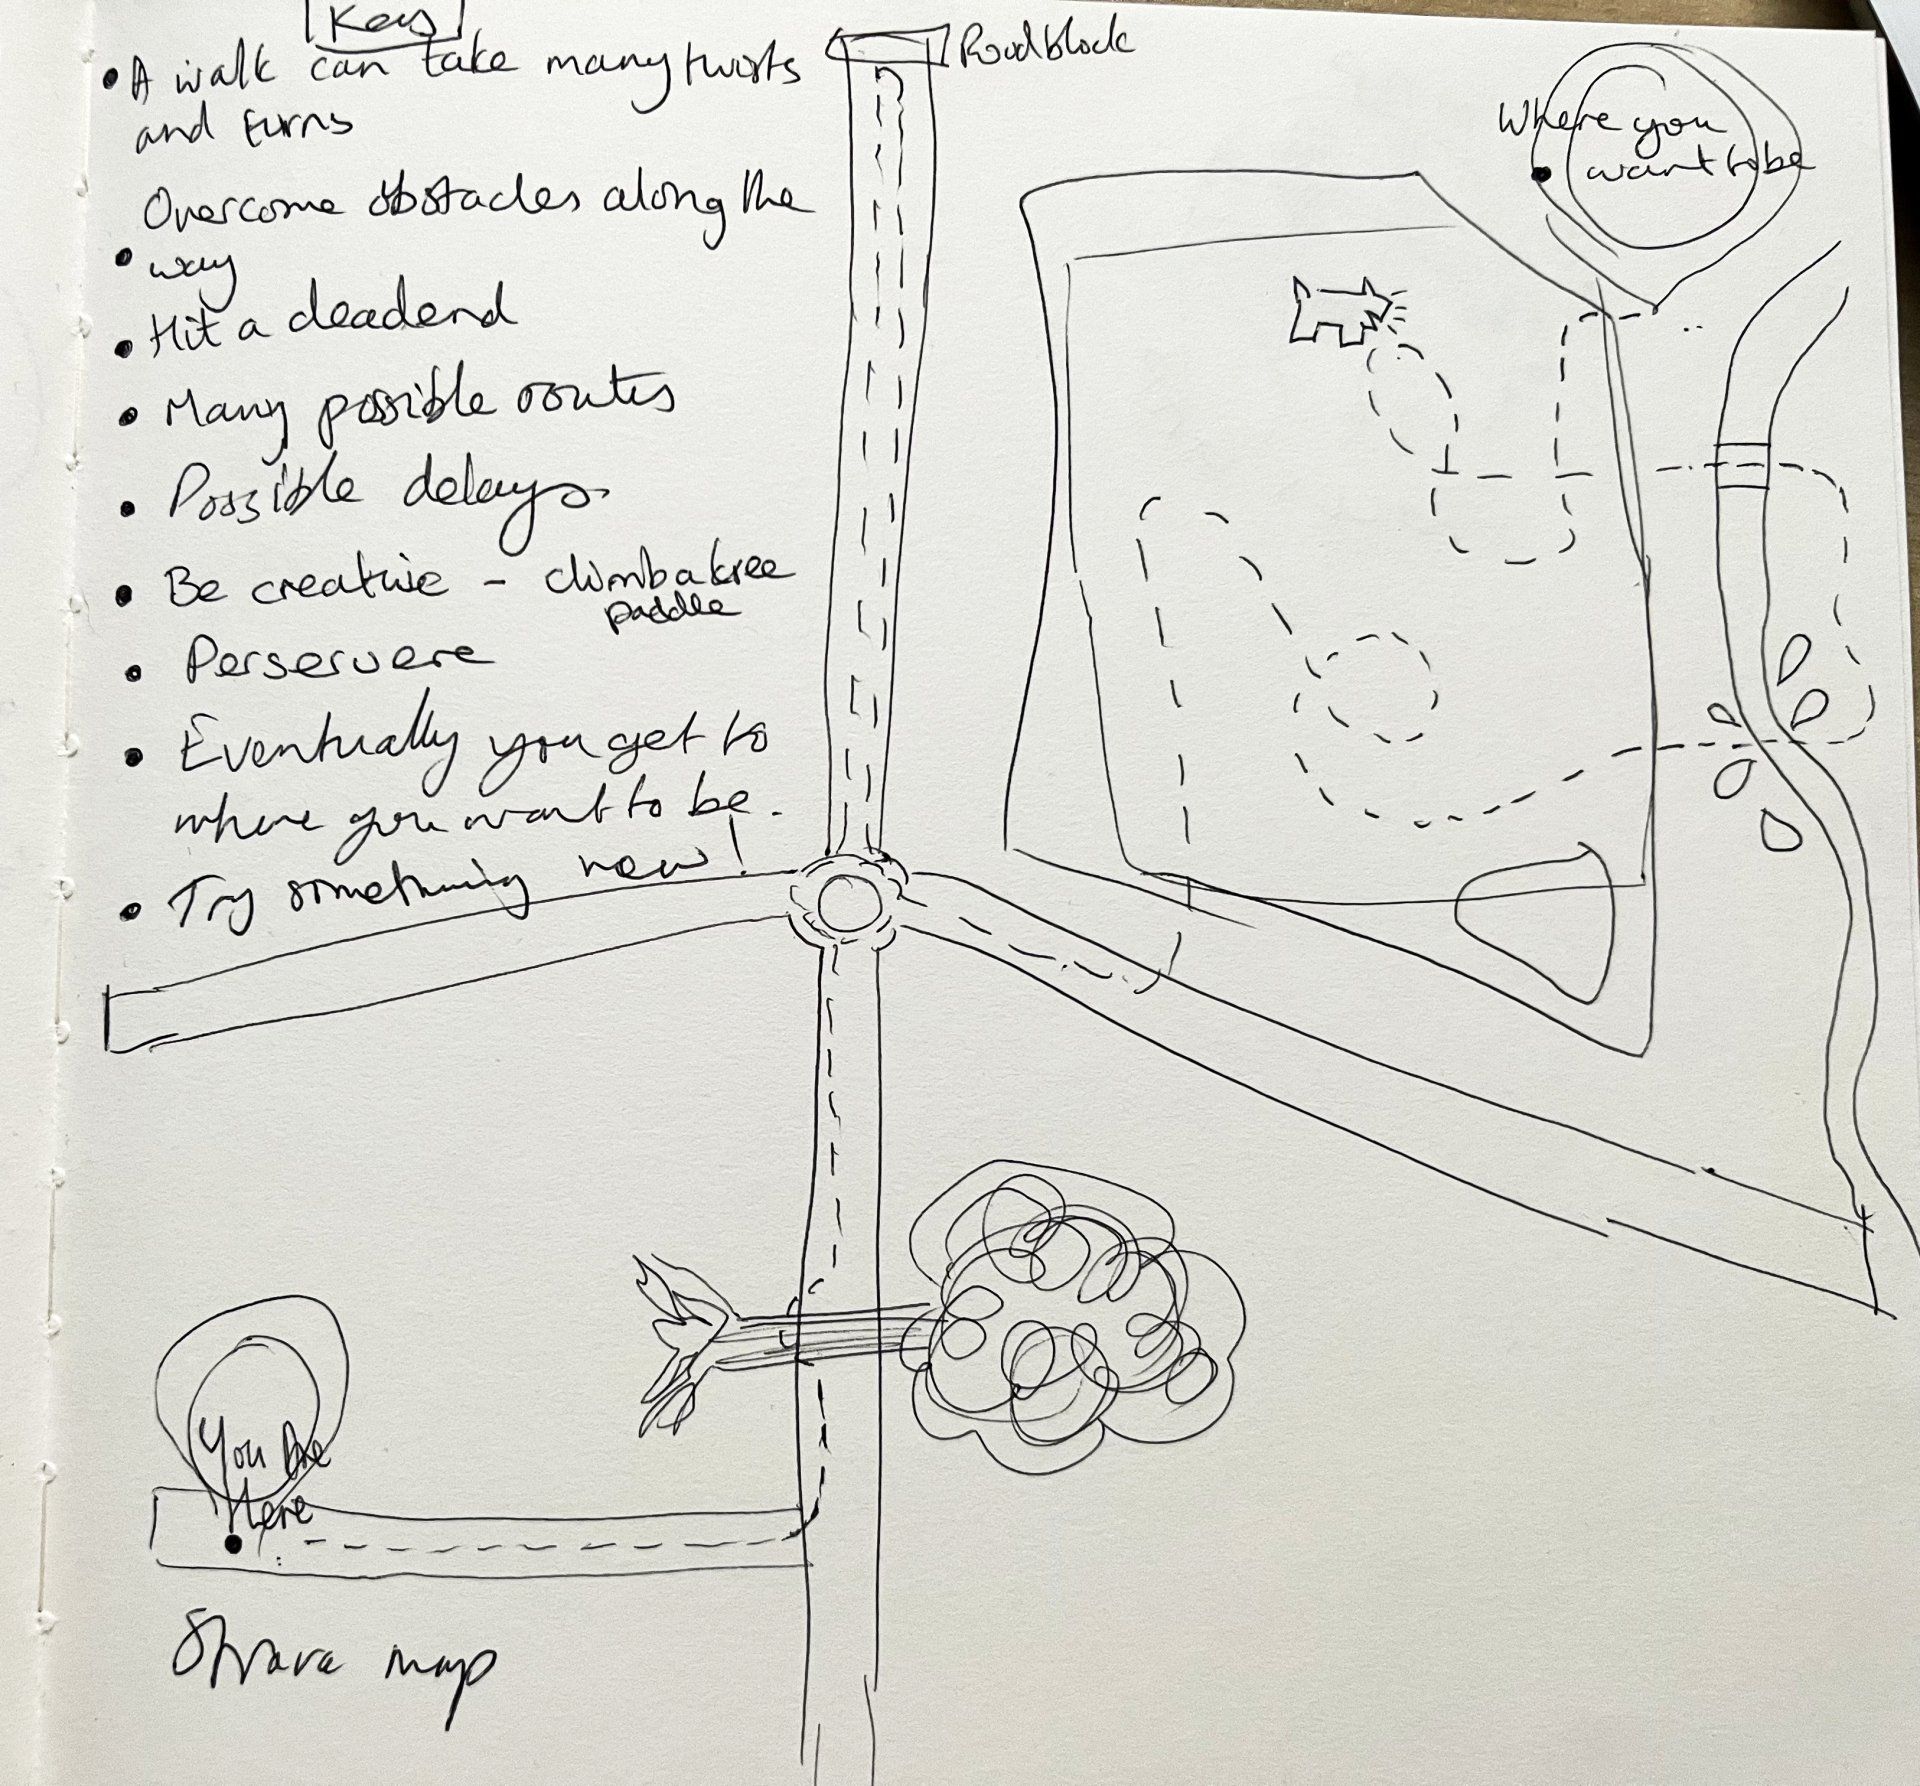 Key
• A walk can take many twists
and turns
Overcome obstacles along the
• way
• Hit a deadend
• Many possible routes
• Possible delays
• Be creative - climb a tree
paddle
• Perservere
• Eventually you get to
where you want to be.
• Try something new!
Roadblock
Where you
want to be
You Are
Here
Strava map